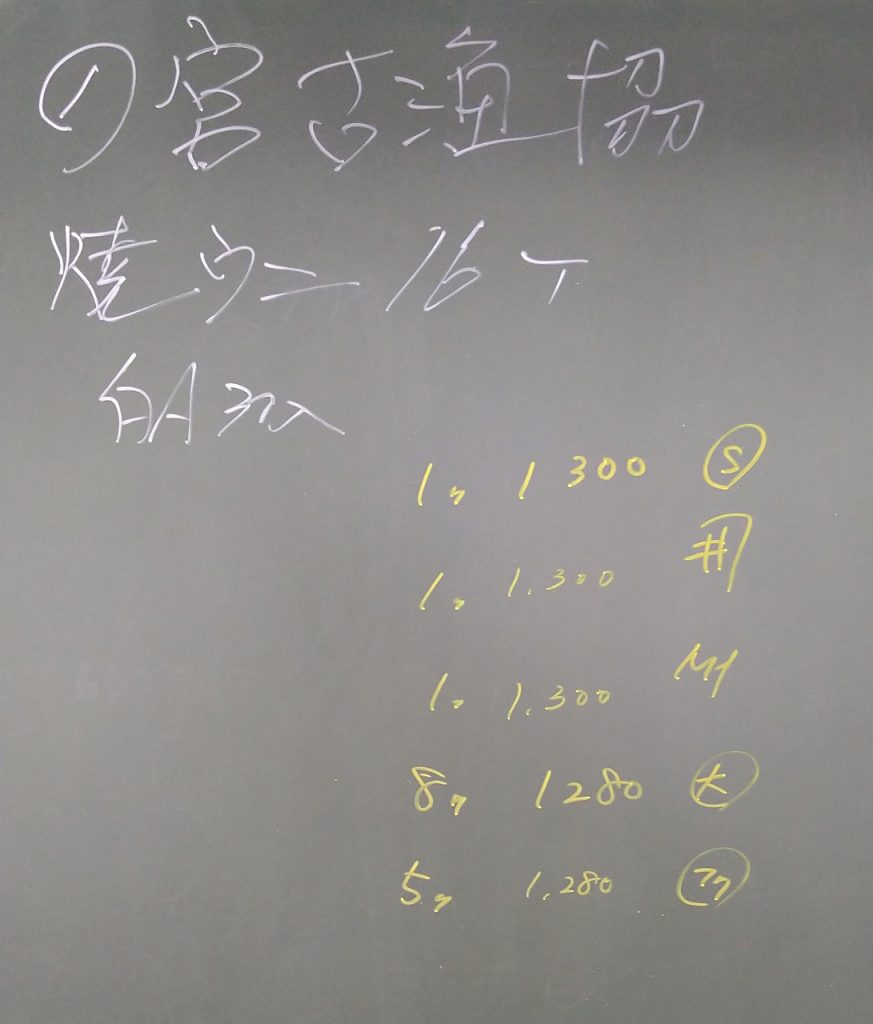 ① 宮古漁協
焼ウニ 16ケ
白A 3入
1ケ 1300 Ⓢ
1ケ 1.300
1ケ 1.300
8ケ 1280 大
5ケ 1.280